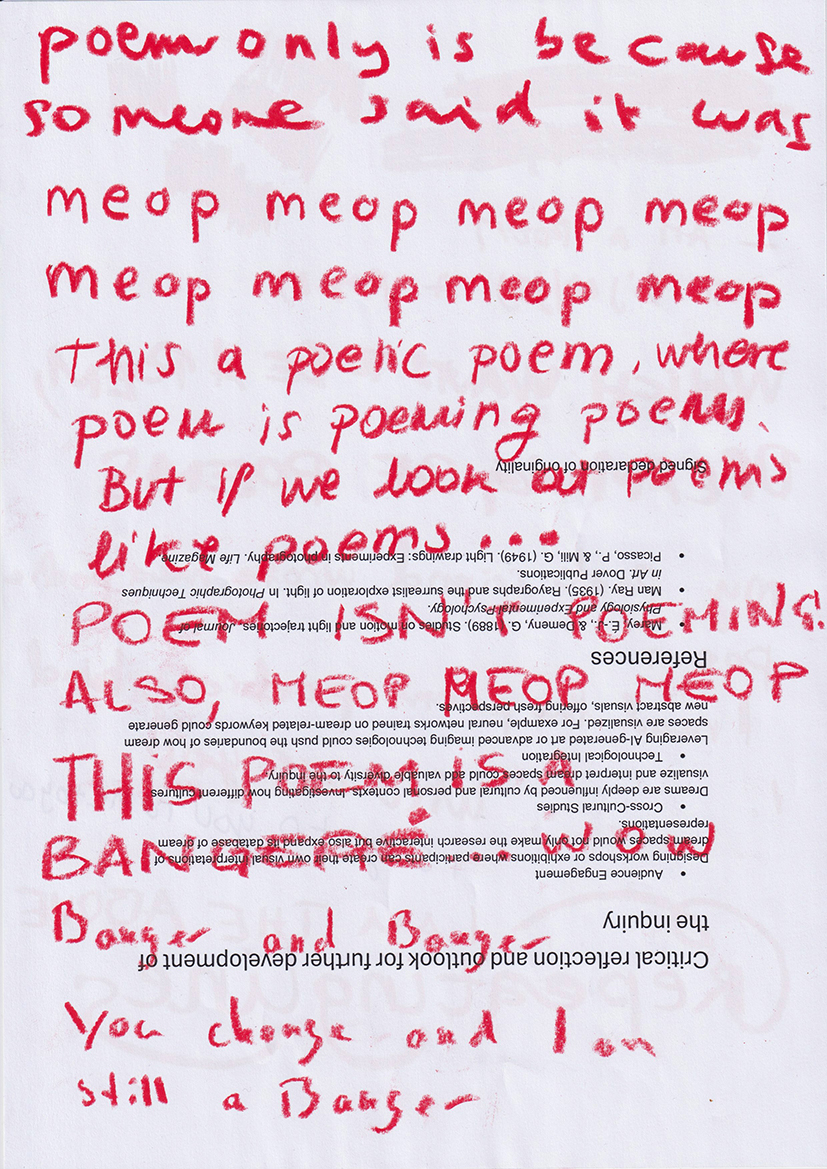 poem only is because
someone said it was
meop meop meop meop
meop meop meop meop
This a poetic poem, where
poem is poeming poems.
But if we look at poems
like poems...
POEM ISN'T POEMING.
ALSO, MEOP MEOP MEOP
THIS POEM IS A
BANGERÉ... WOW
Banger and Banger
You change and I am
still a Banger
Critical reflection and outlook for further development of
the inquiry
• Audience Engagement
Designing workshops or exhibitions where participants can create their own visual interpretations of
dream spaces would not only make the research interactive but also expand its database of dream
representations.
• Cross-Cultural Studies
Dreams are deeply influenced by cultural and personal contexts. Investigating how different cultures
visualize and interpret dream spaces could add valuable diversity to the inquiry.
• Technological Integration
Leveraging AI-generated art or advanced imaging technologies could push the boundaries of how dream
spaces are visualized. For example, neural networks trained on dream-related keywords could generate
new abstract visuals, offering fresh perspectives.
References
• Marey, É.-J., & Demeny, G. (1889). Studies on motion and light trajectories. Journal of
Physiology and Experimental Psychology.
• Man Ray. (1935). Rayographs and the surrealist exploration of light. In Photographic Techniques
in Art. Dover Publications.
• Picasso, P., & Mili, G. (1949). Light drawings: Experiments in photography. Life Magazine.
Signed declaration of originality